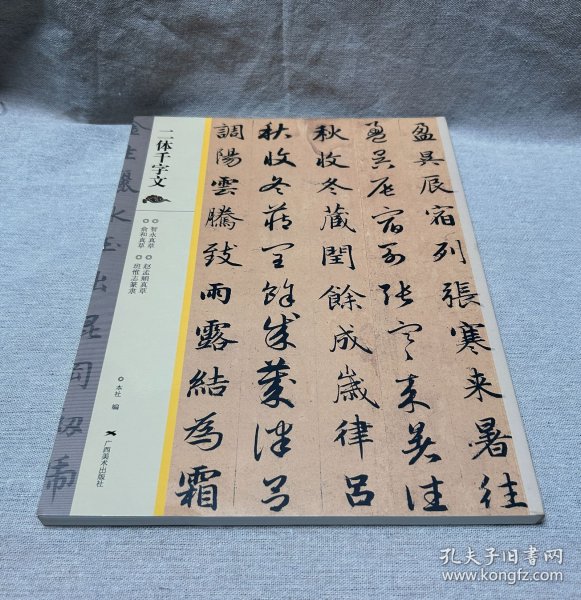 盈昃辰宿列張寒来暑往
盈昃辰宿列张寒来暑往
秋收冬藏閏餘成歲律吕
秋收冬藏闰餘成歲律吕
調陽雲騰致雨露結為霜
二体千字文
◎智永真草 ◎赵孟頫真草
◎俞和真草 ◎班惟志篆隶
◎本社 编
广西美术出版社
金生麗水玉出崑岡
孔夫子旧书网
www.kongfz.com